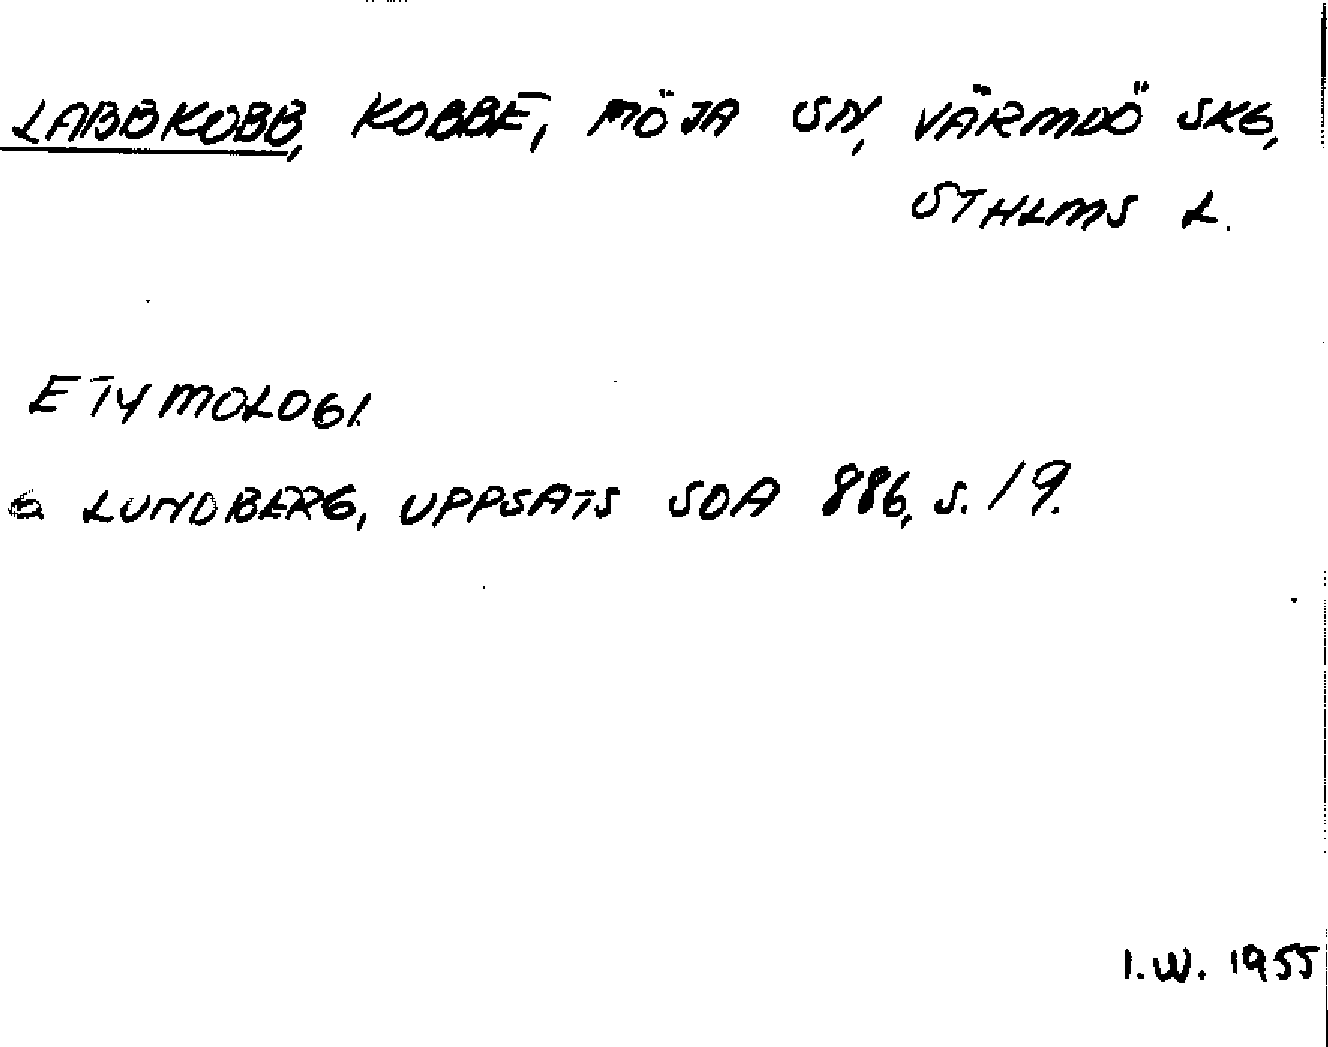 LABBKOBB, KOBBE, MÖJA SN, VÄRMDÖ SKG,
STHLMS L.
ETYMOLOGI.
G LUNDBERG, UPPSATS SOA 886, S. 19.
I.W. 1955